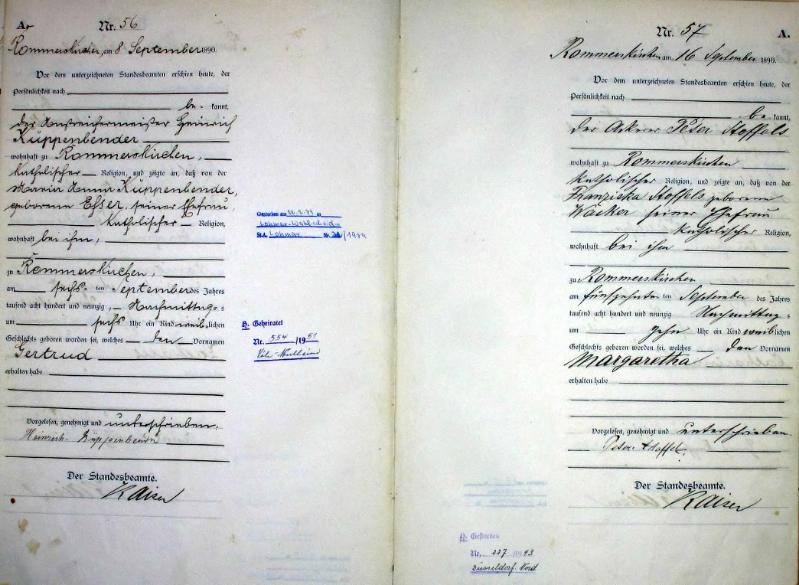 A. Nr. 56
Rommerskirchen, am 8 September 1890.
Vor dem unterzeichneten Standesbeamten erschien heute, der
Persönlichkeit nach
be- kannt,
der Anstreichermeister Heinrich
Küppenbender
wohnhaft zu Rommerskirchen,
katholischer Religion, und zeigte an, daß von der
Maria Anna Küppenbender,
geborene Esser, seiner Ehefrau
katholischer Religion,
wohnhaft bei ihm,
zu Rommerskirchen,
am sechs- ten September des Jahres
tausend acht hundert und neunzig, Nachmittags
um sechs Uhr ein Kind weiblichen
Geschlechts geboren worden sei, welches den Vornamen
Gertrud
erhalten habe
Vorgelesen, genehmigt und unterschrieben.
Heinrich Küppenbender
Der Standesbeamte.
Kaiser
Gestorben am
St.A. Lohmar Nr.
Geheiratet
Nr. 554/1951
Köln-Mülheim
Nr. 57 A.
Rommerskirchen am 16 September 1890.
Vor dem unterzeichneten Standesbeamten erschien heute, der
Persönlichkeit nach
be kannt,
der Ackerer Peter Stoffels
wohnhaft zu Rommerskirchen
katholischer Religion, und zeigte an, daß von der
Franziska Stoffels geborenen
seiner Ehefrau
katholischer Religion,
wohnhaft bei ihm
zu Rommerskirchen
am fünfzehnten September des Jahres
tausend acht hundert und neunzig Nachmittag
um zehn Uhr ein Kind weiblichen
Geschlechts geboren worden sei, welches den Vornamen
Margaretha
erhalten habe
Vorgelesen, genehmigt und unterschrieben
Peter Stoffel.
Der Standesbeamte.
Kaiser
Gestorben
Nr. 227
Düsseldorf-Nord